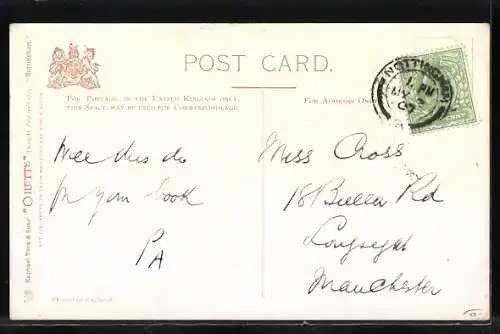 POST CARD.
FOR POSTAGE IN THE UNITED KINGDOM ONLY,
THIS SPACE MAY BE USED FOR CORRESPONDENCE.
FOR ADDRESS ONLY
NOTTINGHAM
Raphael Tuck & Sons' "OILETTE" [Regd.] Postcard "Nottingham."
Will this do
for your book
PA
Miss Cross
18 Rd
Longsight
Manchester